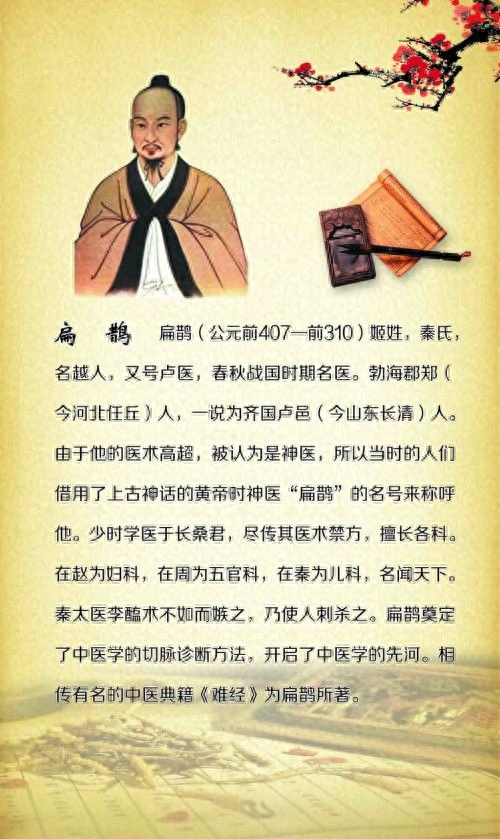 扁 鹊 扁鹊（公元前407—前310）姬姓，秦氏，
名越人，又号卢医，春秋战国时期名医。勃海郡郑（
今河北任丘）人，一说为齐国卢邑（今山东长清）人。
由于他的医术高超，被认为是神医，所以当时的人们
借用了上古神话的黄帝时神医“扁鹊”的名号来称呼
他。少时学医于长桑君，尽传其医术禁方，擅长各科。
在赵为妇科，在周为五官科，在秦为儿科，名闻天下。
秦太医李醯术不如而嫉之，乃使人刺杀之。扁鹊奠定
了中医学的切脉诊断方法，开启了中医学的先河。相
传有名的中医典籍《难经》为扁鹊所著。